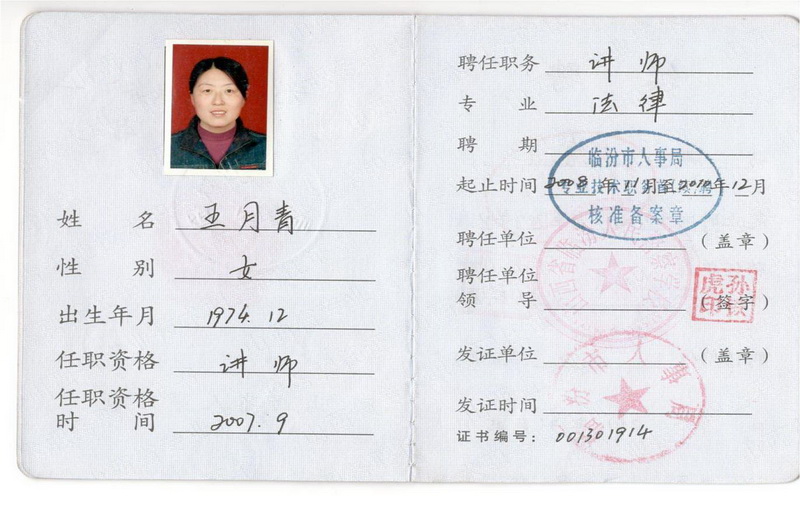 姓 名 王月青
性 别 女
出生年月 1974.12
任职资格 讲师
任职资格
时 间 2007.9
聘任职务 讲师
专 业 法律
聘 期
起止时间 2008年11月至2010年12月
聘任单位 (盖章)
聘任单位
领 导 (签字)
发证单位 (盖章)
发证时间
证书编号: 001301914
临汾市人事局
核准备案章